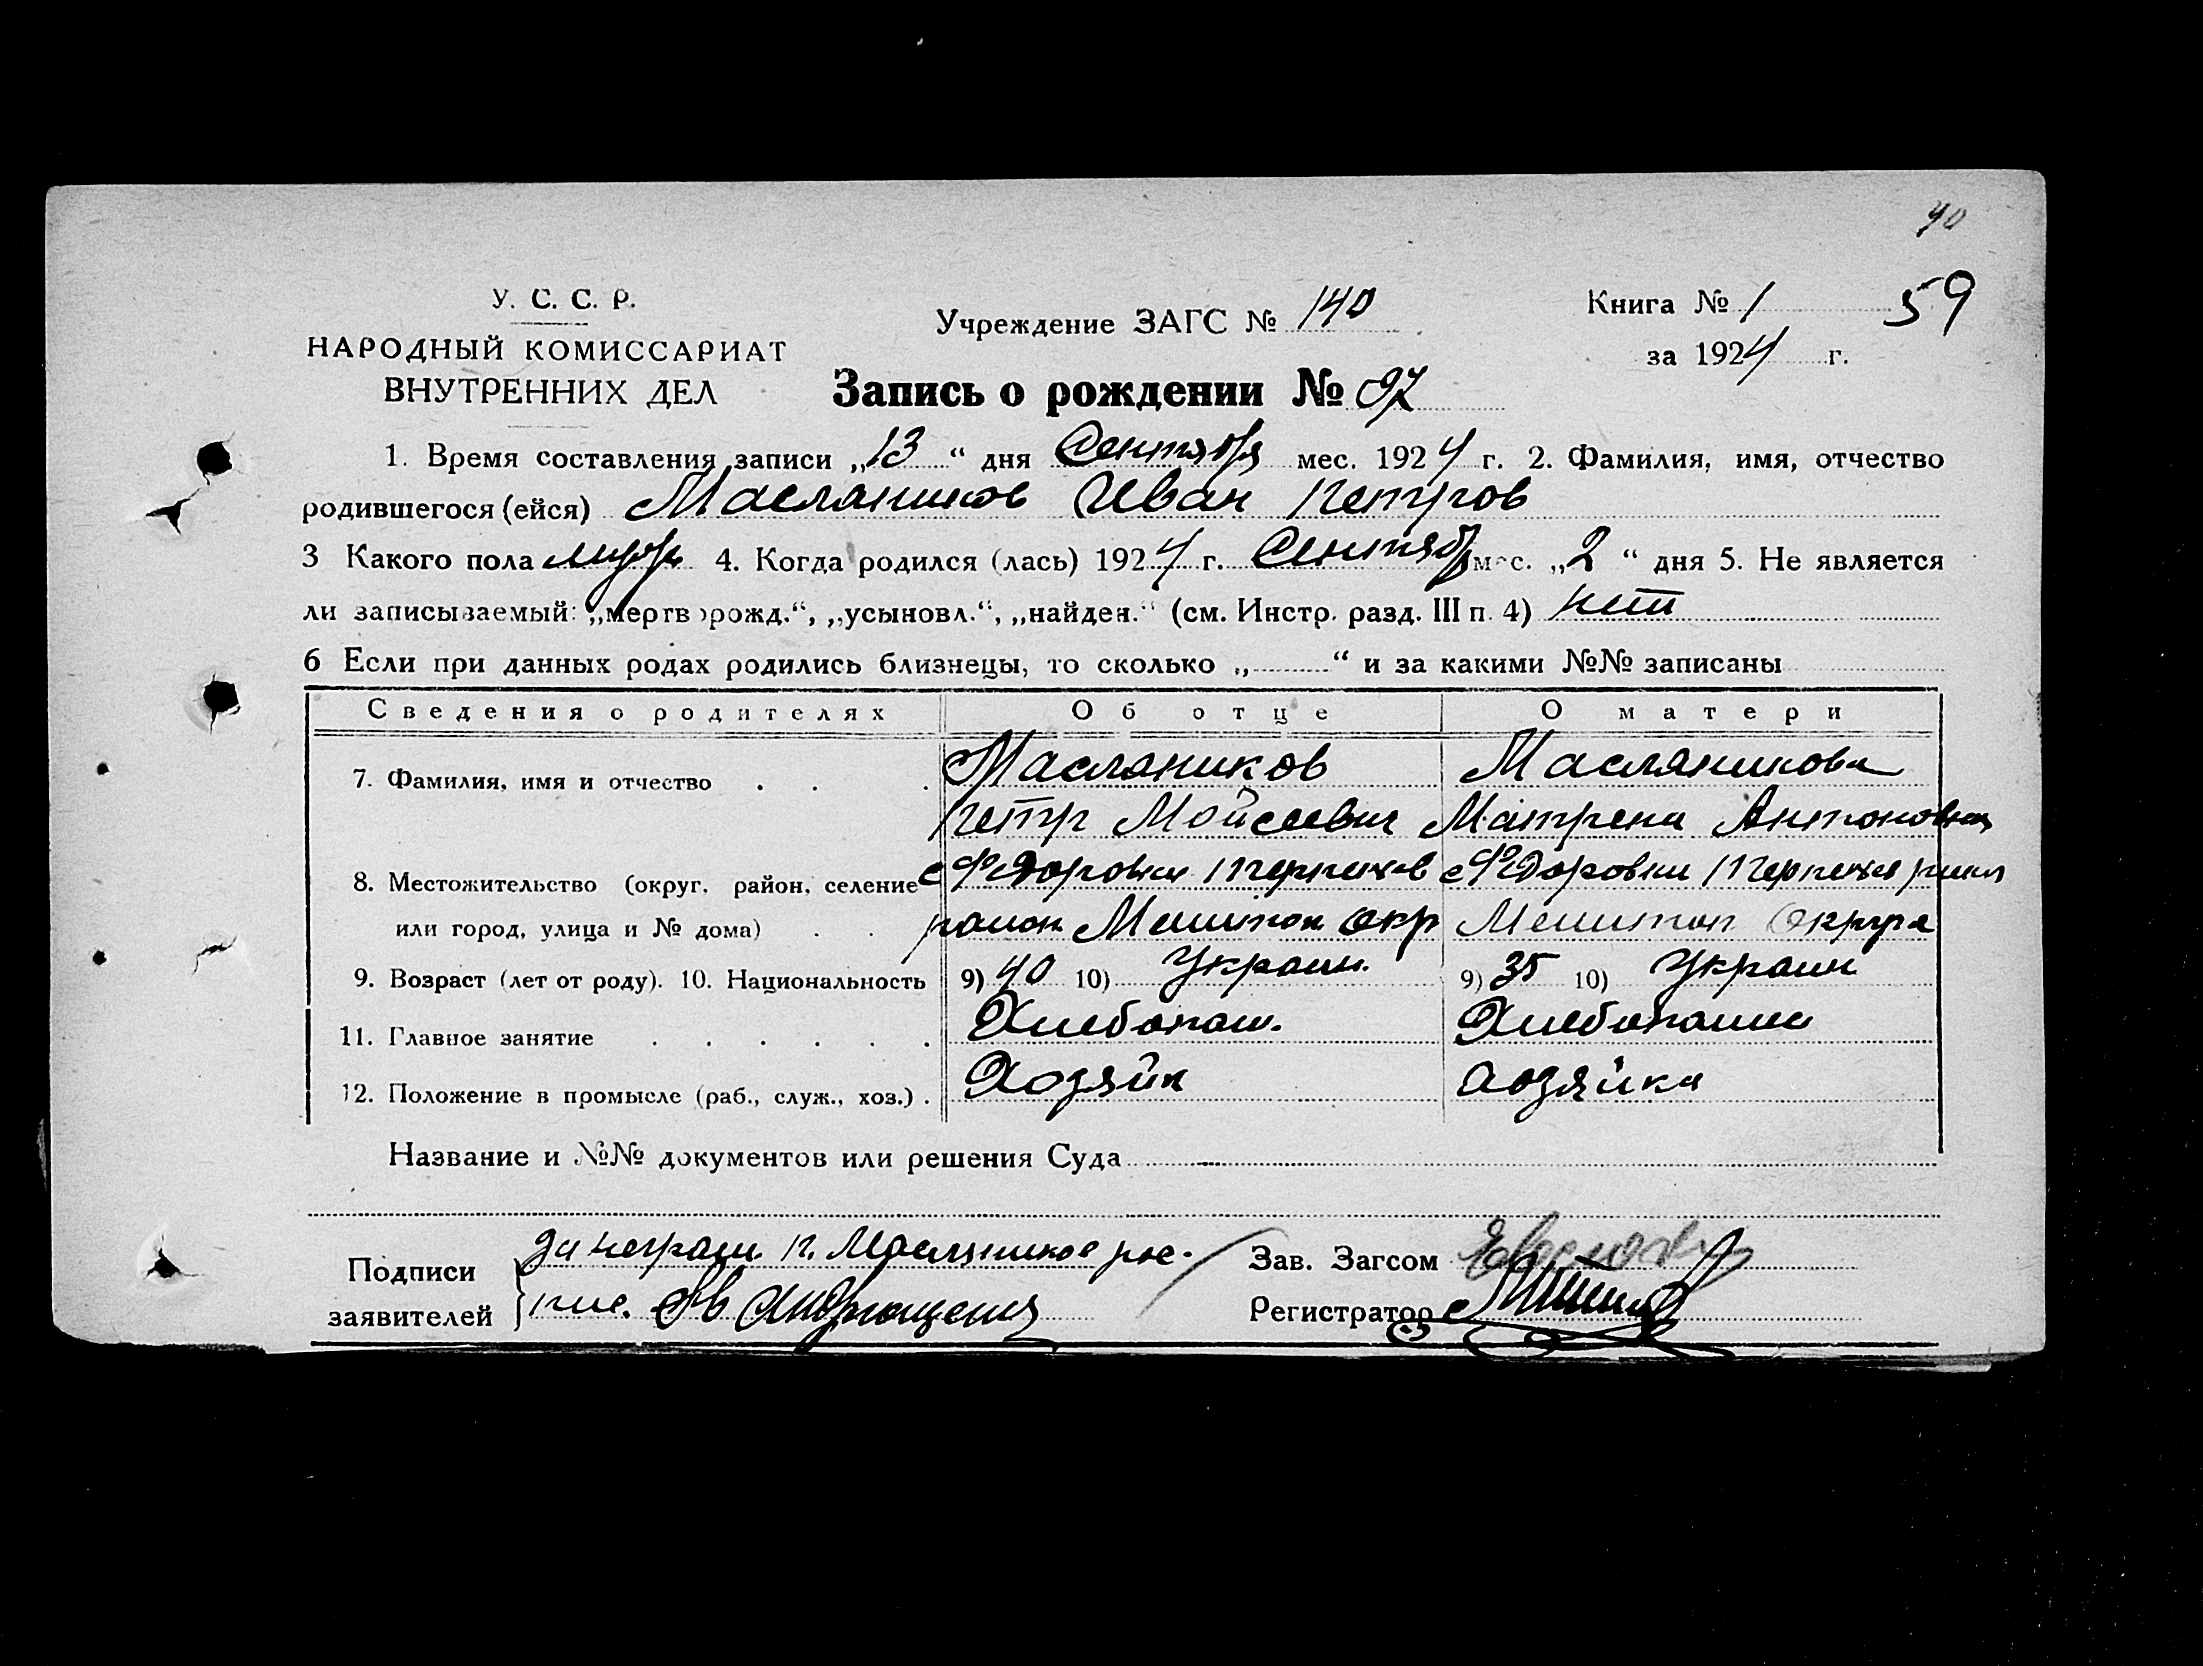 40
У. С. С. Р.
НАРОДНЫЙ КОМИССАРИАТ
ВНУТРЕННИХ ДЕЛ
Учреждение ЗАГС № 140
Книга № 1 59
за 1924 г.
Запись о рождении № 97
1. Время составления записи „13“ дня Сентября мес. 1924 г. 2. Фамилия, имя, отчество
родившегося (ейся) Маслаников Иван Петров
3 Какого пола 4. Когда родился (лась) 1924 г. Сентябр мес. „2“ дня 5. Не является
ли записываемый: „мертворожд.“, „усыновл.“, „найден.“ (см. Инстр. разд. III п. 4) нет
6 Если при данных родах родились близнецы, то сколько „ “ и за какими №№ записаны
Сведения о родителях Об отце О матери
7. Фамилия, имя и отчество Маслаников Масляникова
Петр Мойсеевич Матрена Антоновна
8. Местожительство (округ, район, селение с Федоровки с Федоровки
или город, улица и № дома) район Мелитоп Окр Мелитоп Округа
9. Возраст (лет от роду). 10. Национальность 9) 40 10) Украин. 9) 35 10) Украин
11. Главное занятие Хлебопаш. Хлебопашец
12. Положение в промысле (раб., служ., хоз.) Хозяйн хозяйка
Название и №№ документов или решения Суда
Подписи за неграм. П. Масляников рос-
заявителей пис.
Зав. Загсом
Регистратор